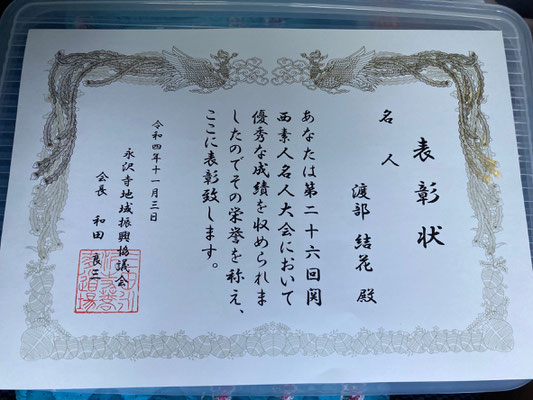 表彰状
名人
渡部 結花 殿
あなたは第二十六回関
西素人名人大会において
優秀な成績を収められま
したのでその栄誉を称え、
ここに表彰致します。
令和四年十一月三日
永沢寺地域振興協議会
会長 和田 良三